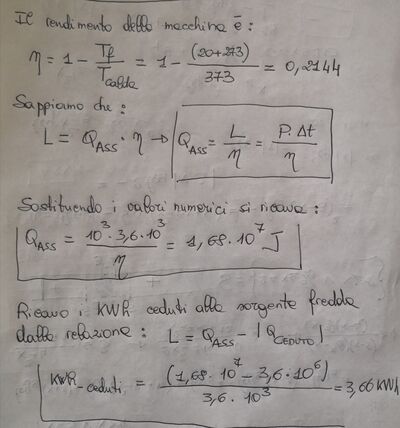 Il rendimento della macchina è:
η = 1 - Tf/Tcalda = 1 - (20+273)/373 = 0,2144
Sappiamo che:
L = QASS · η → QASS = L/η = P·Δt/η
Sostituendo i valori numerici si ricava:
QASS = 10³·3,6·10³/η = 1,68·10⁷ J
Ricavo i KWh ceduti alla sorgente fredda
dalla relazione: L = QASS - |QCEDUTO|
KWh-ceduti = (1,68·10⁷ - 3,6·10⁶)/3,6·10³ = 3,66 KWh